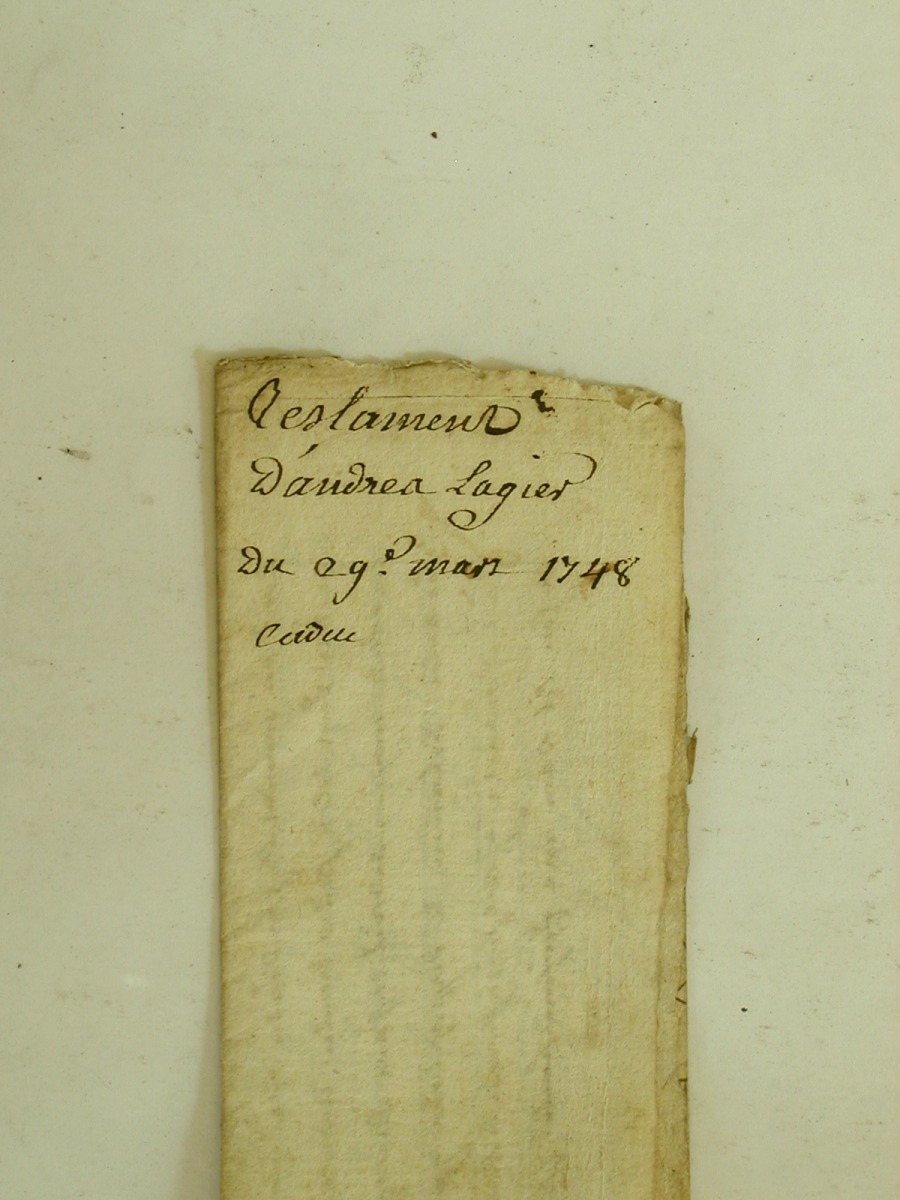 Testament
D'andrea Lagier
Du 29e. mars 1748
Caduc